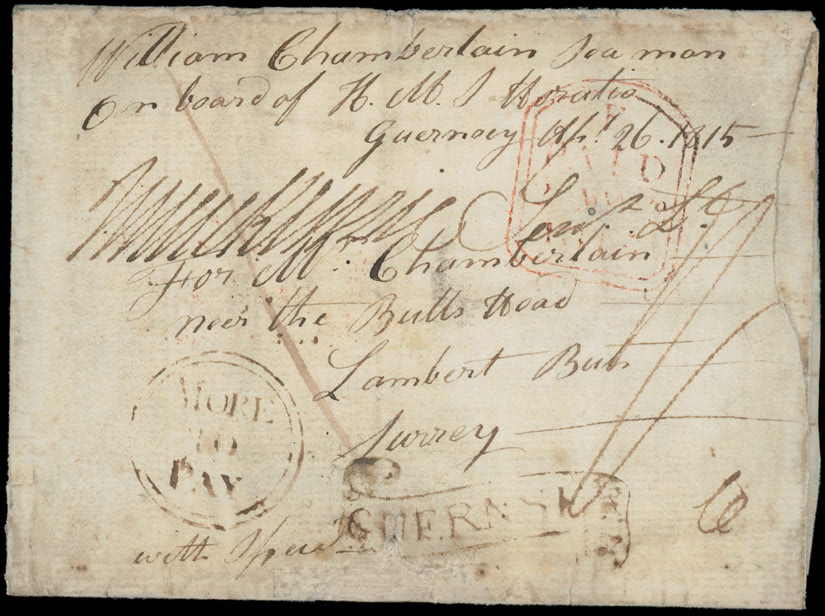 William Chamberlain Sea man
On board of H. M. S Horatio
Guernsey Apl. 26. 1815
PAID
For Mr. Chamberlain
near the Bulls Head
Lambert Buts
Surrey
MORE
TO
PAY
GUERNSEY
with Speed
6